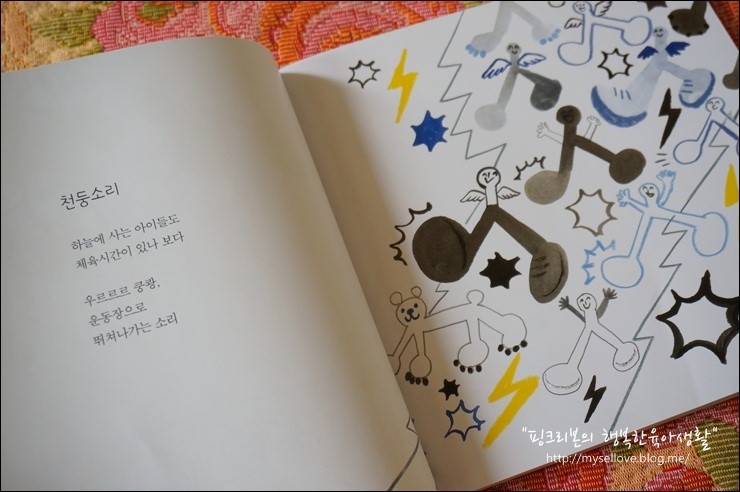 천둥소리
하늘에 사는 아이들도
체육시간이 있나 보다
우르르르 쿵쾅,
운동장으로
뛰쳐나가는 소리
"핑크리본의 행복한육아생활"
http://mysellove.blog.me/